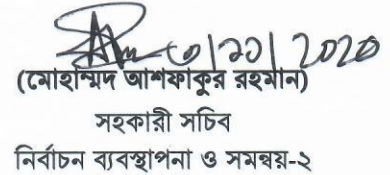 ০/১১/2020
(মোহাম্মদ আশফাকুর রহমান)
সহকারী সচিব
নির্বাচন ব্যবস্থাপনা ও সমন্বয়-২